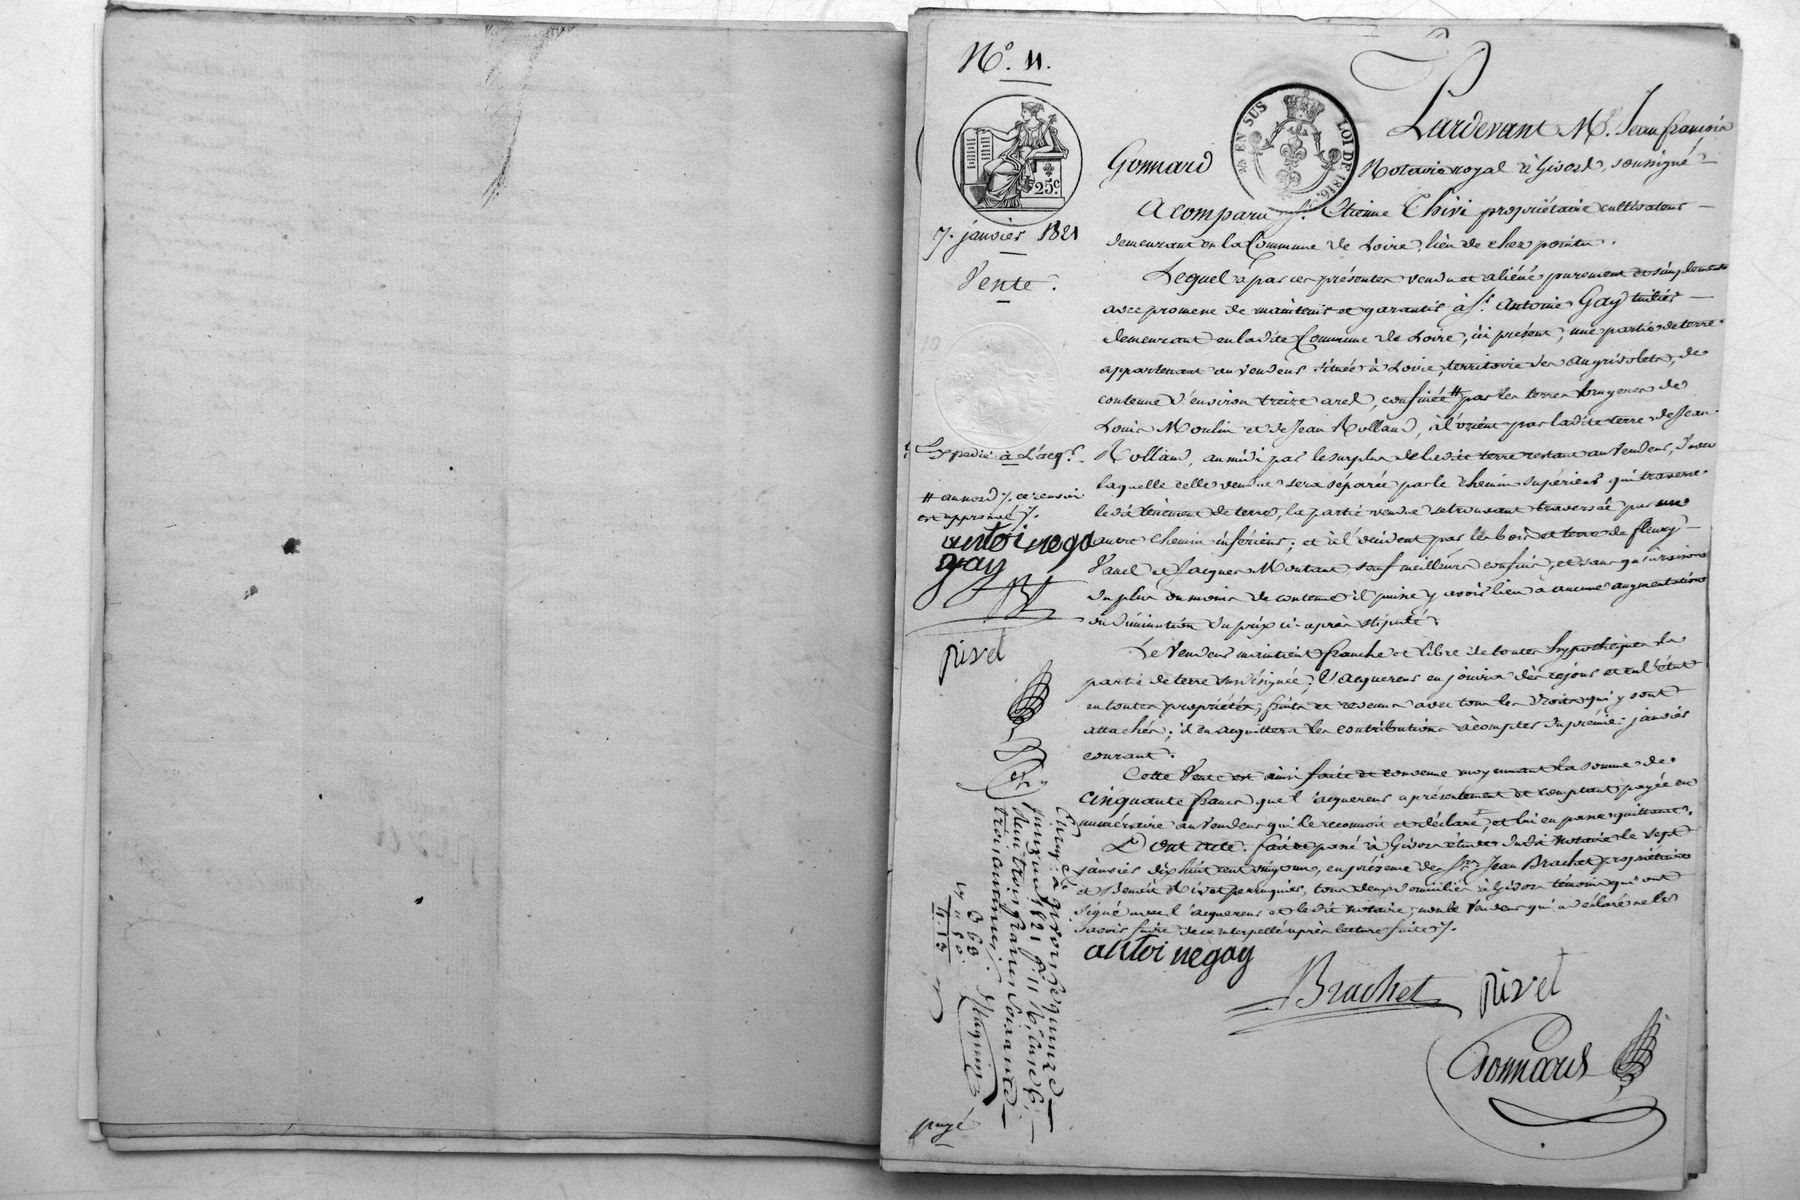 N.° 11.
25c.
7. janvier 1821
Vente.
Expédié à L'acqr.
# au nord /. ce renvoi
est approuvé /.
antoi nega
gay
B
pivet
2s EN SUS
LOI DE 1816.
Pardevant Me. Jean françois
Gonnard Notaire royal à Givors, soussigné
A comparu sr. Etienne Chivi propriétaire cultivateur
demeurant en la Commune de Loire, lieu de chez pointu.
Lequel a par ces présentes vendu et aliéné purement et simplement
avec promesse de maintenir et garantir à sr. Antoine Gay tuilier
demeurant en ladite Commune de Loire, ici présent, une partie de terre
appartenant au vendeur située à Loire, territoire des
contenue d'environ treize ares, confinée # par les terres bruyeres de
Louis Moulin et de Jean Rolland, à l'orient par ladite terre de Jean
Rolland, au midi par le surplus de ladite terre restant au vendeur, d'avec
laquelle celle vendue sera séparée par le chemin supérieur qui traverse
ledit tènement de terre, la partie vendue se trouvant traversée par un
autre chemin inférieur; et à l'occident par les bois et terre de fleury
Vanel et Jacques Montant, sauf meilleurs confins, et sans qu'à raison
du plus ou moins de contenue il puisse y avoir lieu à aucune augmentation
ou diminution du prix ci-après stipulé.
Le Vendeur maintient franche et libre de toutes hypothèques la
partie de terre susdésignée; l'acquereur en jouira dès ce jour et en l'état
en toutes propriétés, fruits et revenus avec tous les droits qui y sont
attachés; il en acquittera les contributions à compter du premier janvier
courant.
Cette Vente est ainsi faite et convenue moyennant la somme de
cinquante francs que l'acquereur a présentement et comptant payée en
numéraire au vendeur qui le reconnoit et déclare, et lui en passe quittance.
Dont acte. fait et passé à Givors étude dudit notaire le sept
janvier dix huit cent vingt un, en présence des srs. Jean Brachet propriétaire
et Benoit Pivet perruquier, tous deux domiciliés à Givors témoins qui ont
signé avec l'acquereur et ledit notaire, non le Vendeur qui a déclaré ne le
savoir faire de ce interpellé après lecture faite /.
antoi ne gay
Brachet
pivet
Gonnard
Enreg. à givors le quinze
janvier 1821 f. 11
Reçu trois francs soixante
trois centimes.
Magnin
3 63
" 50
4. 13
payé